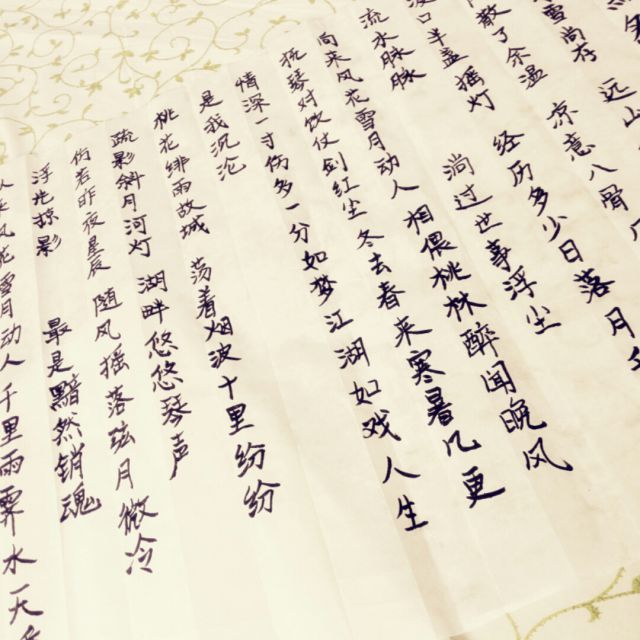 尚存 远山
散了余温 凉意八骨
口半盏摇灯 经历多少日落月
流水脉脉 淌过世事浮尘
向来风花雪月动人 相偎桃林醉闻晚风
抚琴对饮仗剑红尘 冬去春来寒暑几更
情深一寸伤多一分 如梦江湖如戏人生
是我沉沦
桃花绯雨故城 荡着烟波十里纷纷
疏影斜月河灯 湖畔悠悠琴声
仿若昨夜星辰 随风摇落弦月微冷
浮光掠影 最是黯然销魂
风花雪月动人 千里雨霁水一天